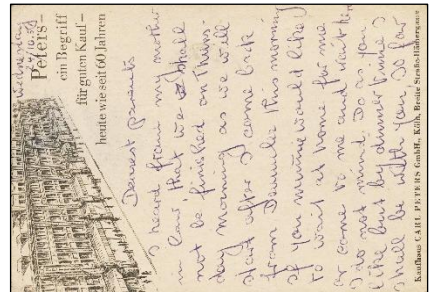 Wednesday
Peters-
ein Begriff
für guten Kauf-
heute wie seit 60 Jahren
Dearest parents
I heard from my mother
in law that we shall
not be finished on Thurs-
day morning as we will
start after I come back
from this morning
If you would like
to wait at home for me
or come to me and wait here
I do not mind. Do as you
like but by dinner time I
shall be with you. So far
Kaufhaus CARL PETERS GmbH., Köln, Breite Straße-Richmodstr.